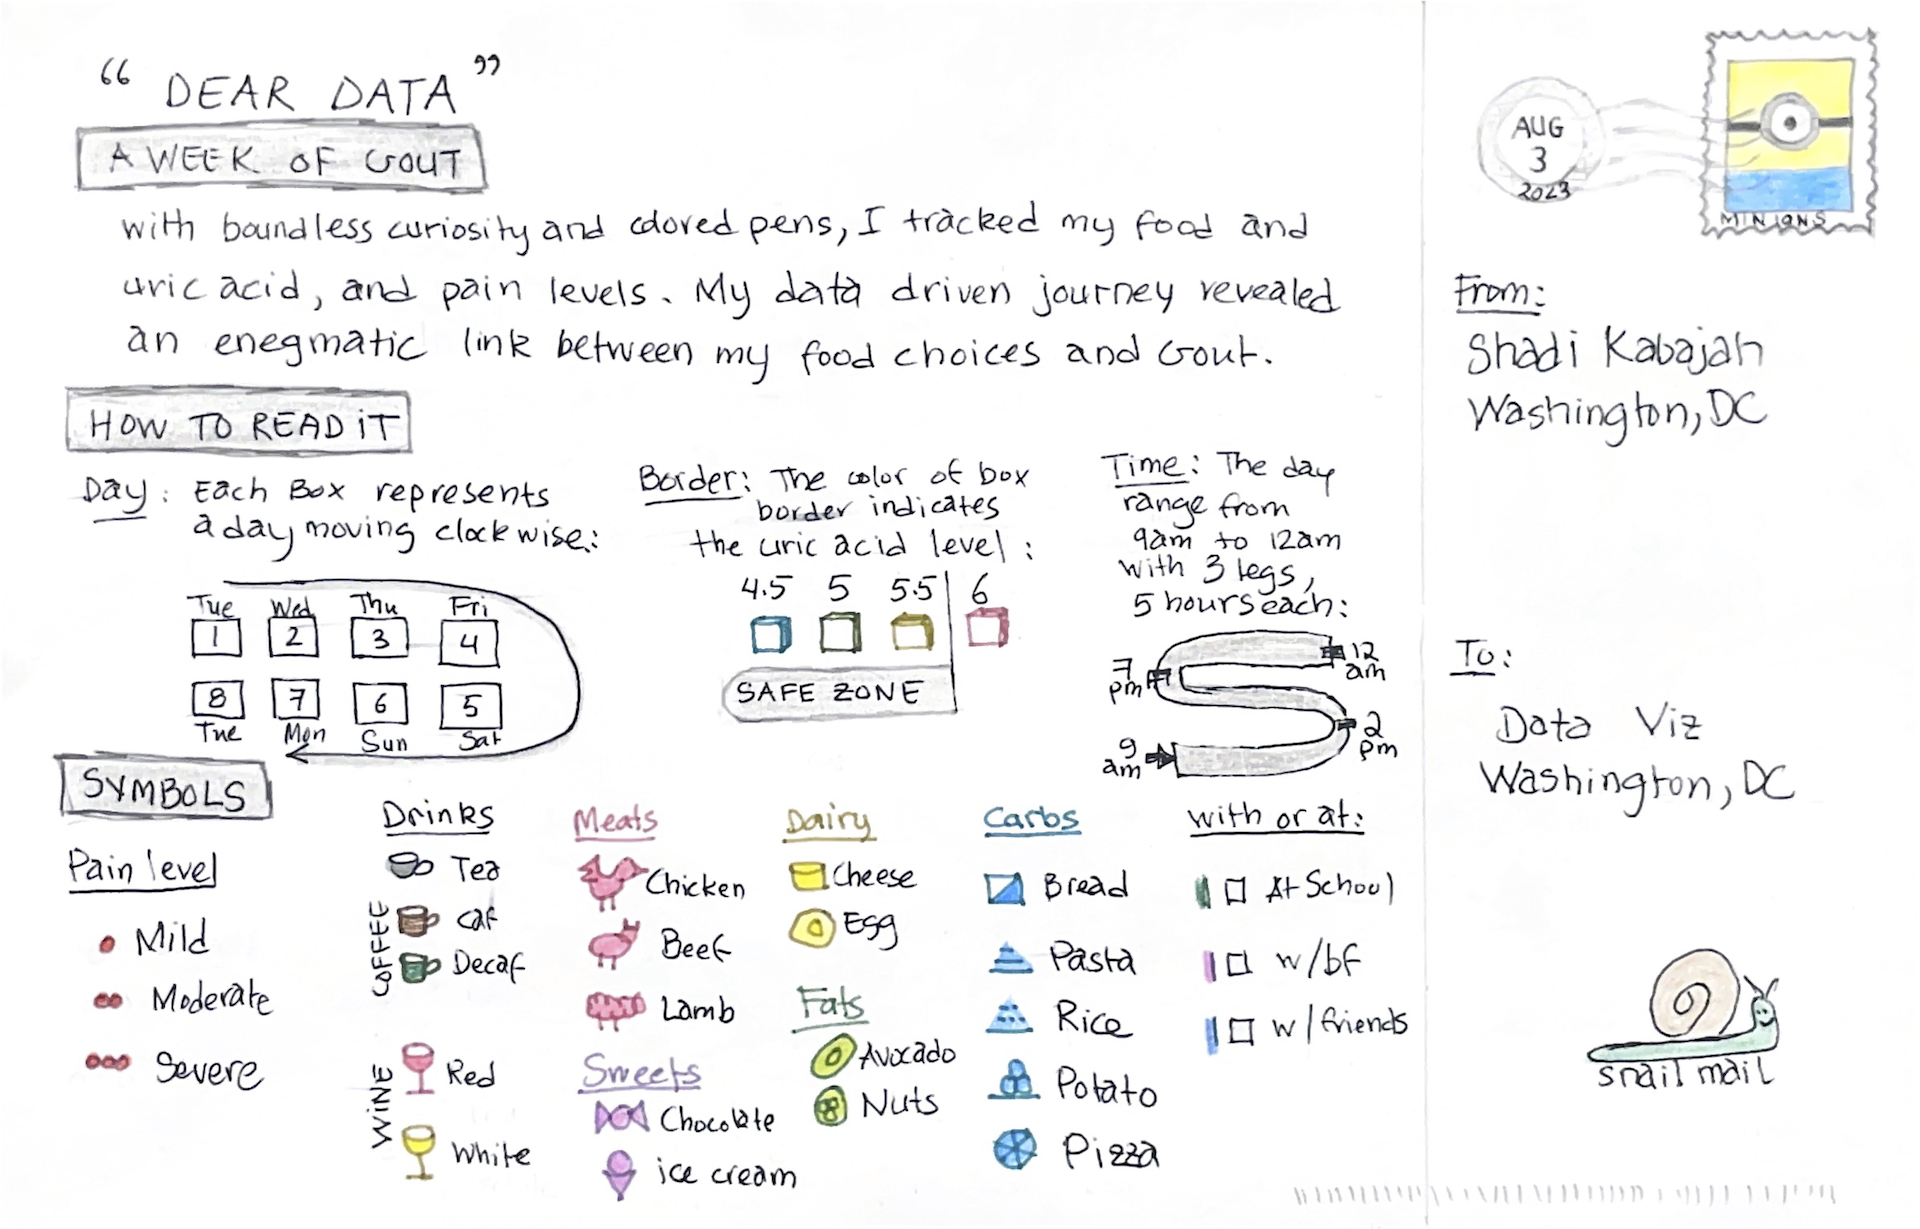 “ DEAR DATA ”
A WEEK OF GOUT
with boundless curiosity and colored pens, I tracked my food and
uric acid, and pain levels. My data driven journey revealed
an enegmatic link between my food choices and Gout.
HOW TO READ iT
Day: Each Box represents
a day moving clockwise:
Tue Wed Thu Fri
1 2 3 4
8 7 6 5
Tue Mon Sun Sat
Border: The color of box
border indicates
the uric acid level:
4.5 5 5.5 6
SAFE ZONE
Time: The day
range from
9am to 12am
with 3 legs,
5 hours each:
12
am
7
pm
2
pm
9
am
SYMBOLS
Pain level
Mild
Moderate
Severe
Drinks
Tea
COFFEE
Caf
Decaf
WiNE
Red
White
Meats
Chicken
Beef
Lamb
Sweets
Chocolate
ice cream
Dairy
Cheese
Egg
Fats
Avocado
Nuts
Carbs
Bread
Pasta
Rice
Potato
Pizza
with or at:
At School
w/bf
w/friends
AUG
3
2023
MINIONS
From:
Shadi Kabajah
Washington, DC
To:
Data Viz
Washington, DC
snail mail